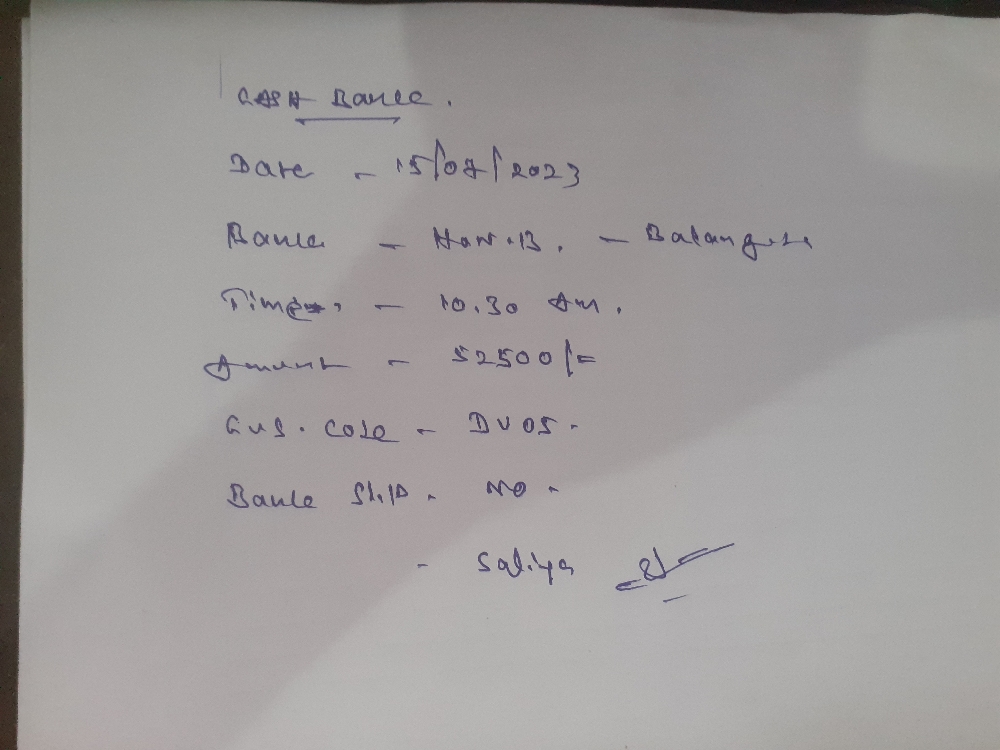 CASH Bank.
Date - 15/07/2023
Bank - Han.B. -
Time - 10.30 Am.
Amount - 52500/=
Cus. Code - DV05.
Bank Slip - NO -
- Saliya